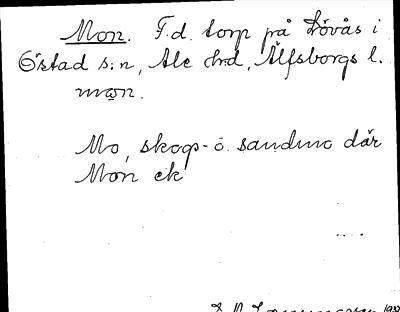 Mon. F.d. torp på Lövås i
Östad s:n, Ale hrd, Älfsborgs l.
mon.
Mo, skogs- o. sandmo där
Mon ek